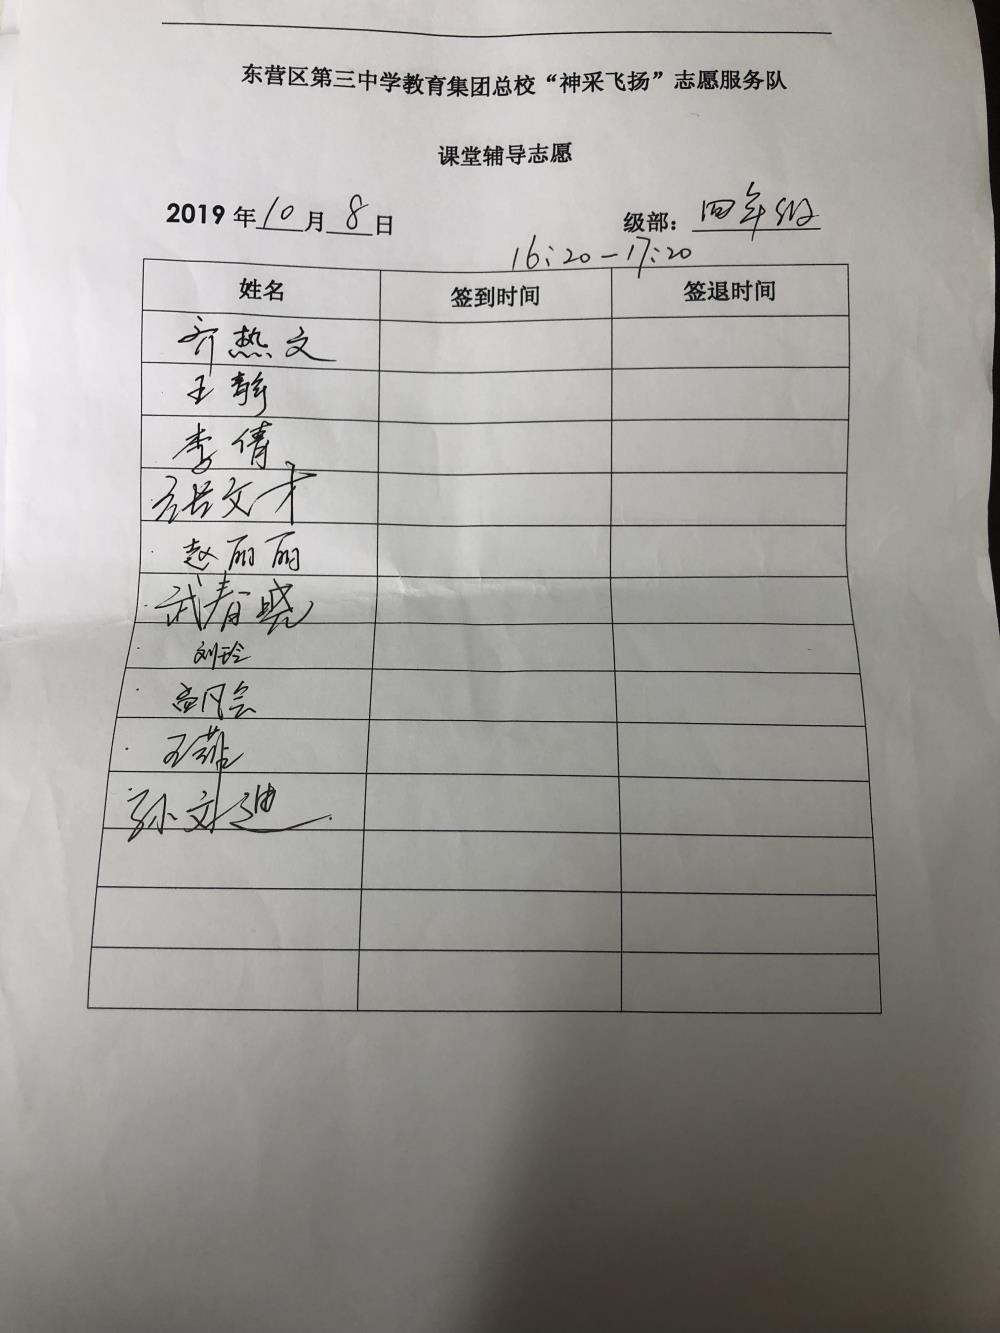 东营区第三中学教育集团总校“神采飞扬”志愿服务队
课堂辅导志愿
2019 年 10 月 8 日 级部：四年级
16:20-17:20
姓名 签到时间 签退时间
齐热文
王静
李倩
张文才
赵丽丽
武春晓
刘玲
高凤会
王茹
孙文迪